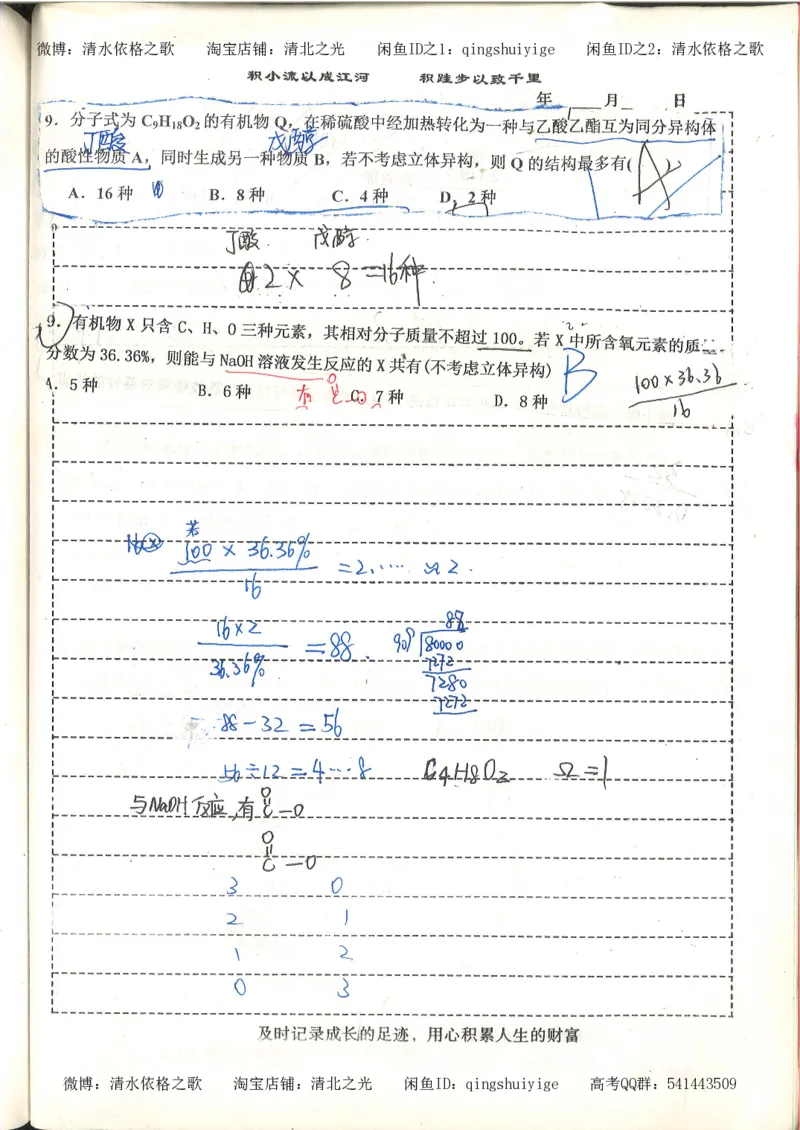 微博：清水依格之歌 淘宝店铺：清北之光 闲鱼ID之1：qingshuiyige 闲鱼ID之2：清水依格之歌
积小流以成江河 积跬步以致千里
年 月 日
9．分子式为 C₉H₁₈O₂ 的有机物 Q，在稀硫酸中经加热转化为一种与乙酸乙酯互为同分异构体
丁酸 戊醇
的酸性物质 A，同时生成另一种物质 B，若不考虑立体异构，则 Q 的结构最多有( A )
A．16 种 B．8 种 C．4 种 D．2 种
丁酸 戊醇
2 × 8 =16种
9．有机物 X 只含 C、H、O 三种元素，其相对分子质量不超过 100。若 X 中所含氧元素的质
分数为 36.36%，则能与 NaOH 溶液发生反应的 X 共有(不考虑立体异构) B
A．5 种 B．6 种 C．7 种 D．8 种
有 O
C-O
100×36.36
16
若
100 × 36.36%
16
=2.…… ≈2.
16×2
36.36%
=88.
88
909 80000
7272
7280
7272
88-32=56
56÷12=4…8 C₄H₈O₂ Ω=1
与NaOH反应,有 O
C-O
O
C-O
3 0
2 1
1 2
0 3
及时记录成长的足迹，用心积累人生的财富
微博：清水依格之歌 淘宝店铺：清北之光 闲鱼ID：qingshuiyige 高考QQ群：541443509